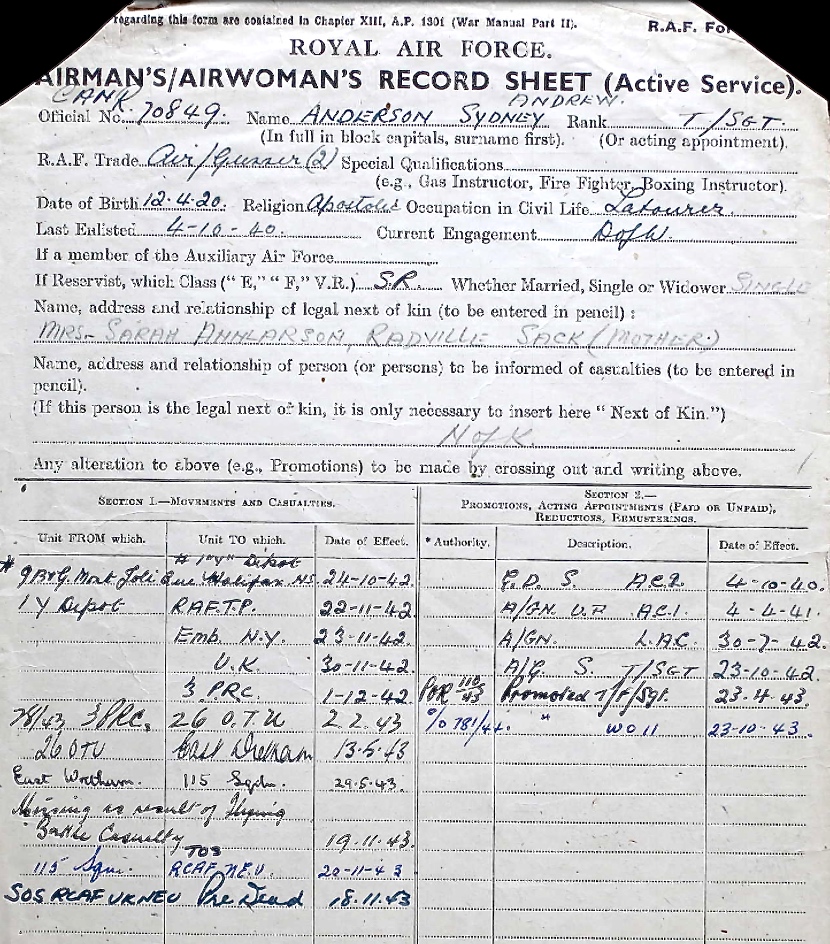 regarding this form are contained in Chapter XIII, A.P. 1301 (War Manual Part II).
R.A.F. For
ROYAL AIR FORCE.
AIRMAN'S/AIRWOMAN'S RECORD SHEET (Active Service).
CAN/R. ANDREW.
Official No. 70849. Name ANDERSON SYDNEY Rank T/SGT.
(In full in block capitals, surname first). (Or acting appointment).
R.A.F. Trade Air/Gunner (2) Special Qualifications
(e.g., Gas Instructor, Fire Fighter, Boxing Instructor).
Date of Birth 12.4.20. Religion Apostolic Occupation in Civil Life Labourer.
Last Enlisted 4-10-40. Current Engagement DofW.
If a member of the Auxiliary Air Force
If Reservist, which Class ("E," "F," V.R.) S.R. Whether Married, Single or Widower SINGLE
Name, address and relationship of legal next of kin (to be entered in pencil) :
MRS- SARAH ANN LARSON, RADVILLE SACK (MOTHER)
Name, address and relationship of person (or persons) to be informed of casualties (to be entered in
pencil).
(If this person is the legal next of kin, it is only necessary to insert here "Next of Kin.")
N of K.
Any alteration to above (e.g., Promotions) to be made by crossing out and writing above.
SECTION 1.—MOVEMENTS AND CASUALTIES. SECTION 2.—
PROMOTIONS, ACTING APPOINTMENTS (PAID OR UNPAID),
REDUCTIONS, REMUSTERINGS.
Unit FROM which. Unit TO which. Date of Effect. * Authority. Description. Date of Effect.
# 1 "Y" Depot
# 9 B&G. Mont Joli Que Halifax NS. 24-10-42. G.D. S. A.C.2. 4-10-40.
1 Y Depot R.A.F.T.P. 22-11-42 A/GN. U.P. A.C.1. 4-4-41.
Emb. N.Y. 23-11-42. A/GN. L.AC. 30-7-42.
U.K. 30-11-42. A/G S. T/SGT 23-10-42.
3 PRC. 1-12-42. POR 110/43 Promoted T/F/Sgt. 23.4.43.
78/43 3 PRC. 26 O.T.U 2.2.43 % 781/44. " WO II 23-10-43.
26 OTU East Wretham 13.5.43
East Wretham. 115 Sqdn. 29.5.43.
Missing as result of Flying
Battle Casualty 19.11.43.
TOS
115 Sqn. RCAF N.E.U. 20-11-43
SOS RCAF UK NEU Pre Dead 18.11.43